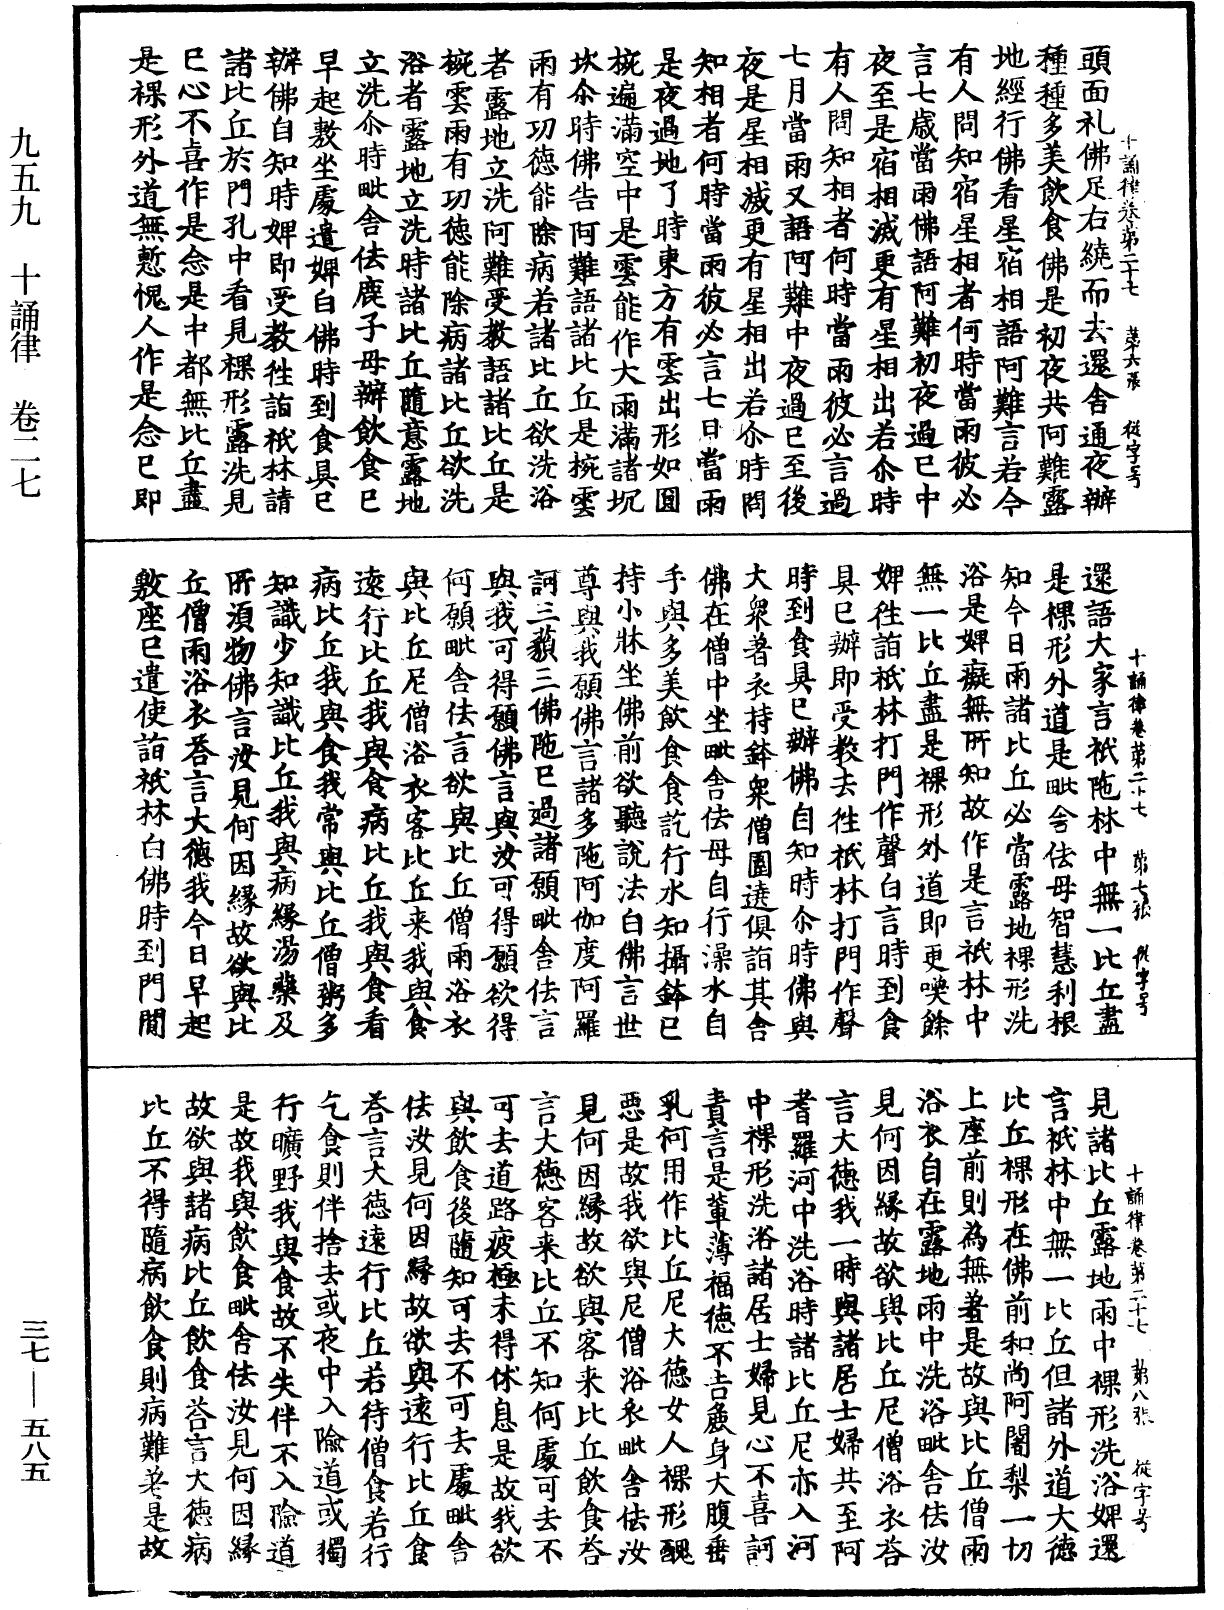 九五九　十誦律　卷二七
三七——五八五
十誦律卷第二十七　第六張　從字号
頭面礼佛足右繞而去還舍通夜辦
種種多美飲食佛是初夜共阿難露
地經行佛看星宿相語阿難言若今
有人問知宿星相者何時當雨彼必
言七歲當雨佛語阿難初夜過已中
夜至是宿相滅更有星相出若尒時
有人問知相者何時當雨彼必言過
七月當雨又語阿難中夜過已至後
夜是星相滅更有星相出若尒時問
知相者何時當雨彼必言七日當雨
是夜過地了時東方有雲出形如圓
椀遍滿空中是雲能作大雨滿諸坑
坎尒時佛告阿難語諸比丘是椀雲
雨有功德能除病若諸比丘欲洗浴
者露地立洗阿難受教語諸比丘是
椀雲雨有功德能除病諸比丘欲洗
浴者露地立洗時諸比丘隨意露地
立洗尒時毗舍佉鹿子母辦飲食已
早起敷坐處遣婢白佛時到食具已
辦佛自知時婢即受教往詣祇林請
諸比丘於門孔中看見裸形露洗見
已心不喜作是念是中都無比丘盡
是裸形外道無慙愧人作是念已即
十誦律卷第二十七　第七張　從字号
還語大家言祇陁林中無一比丘盡
是裸形外道是毗舍佉母智慧利根
知今日雨諸比丘必當露地裸形洗
浴是婢癡無所知故作是言祇林中
無一比丘盡是裸形外道即更喚餘
婢往詣祇林打門作聲白言時到食
具已辦即受教去往祇林打門作聲
時到食具已辦佛自知時尒時佛與
大衆著衣持鉢衆僧圍遶俱詣其舍
佛在僧中坐毗舍佉母自行澡水自
手與多美飲食食訖行水知攝鉢已
持小牀坐佛前欲聽說法白佛言世
尊與我願佛言諸多陁阿伽度阿羅
訶三藐三佛陁已過諸願毗舍佉言
與我可得願佛言與汝可得願欲得
何願毗舍佉言欲與比丘僧雨浴衣
與比丘尼僧浴衣客比丘来我與食
遠行比丘我與食病比丘我與食看
病比丘我與食我常與比丘僧粥多
知識少知識比丘我與病緣湯藥及
所須物佛言汝見何因緣故欲與比
丘僧雨浴衣荅言大德我今日早起
敷座已遣使詣祇林白佛時到門間
十誦律卷第二十七　第八張　從字号
見諸比丘露地雨中裸形洗浴婢還
言祇林中無一比丘但諸外道大德
比丘裸形在佛前和尚阿闍梨一切
上座前則為無羞是故與比丘僧雨
浴衣自在露地雨中洗浴毗舍佉汝
見何因緣故欲與比丘尼僧浴衣荅
言大德我一時與諸居士婦共至阿
耆羅河中洗浴時諸比丘尼亦入河
中裸形洗浴諸居士婦見心不喜訶
責言是輩薄福德不吉麁身大腹垂
乳何用作比丘尼大德女人裸形醜
惡是故我欲與尼僧浴衣毗舍佉汝
見何因緣故欲與客来比丘飲食荅
言大德客来比丘不知何處可去不
可去道路疲極未得休息是故我欲
與飲食後隨知可去不可去處毗舍
佉汝見何因緣故欲與遠行比丘食
荅言大德遠行比丘若待僧食若行
乞食則伴捨去或夜中入險道或獨
行曠野我與食故不失伴不入險道
是故我與飲食毗舍佉汝見何因緣
故欲與諸病比丘飲食荅言大德病
比丘不得隨病飲食則病難差是故